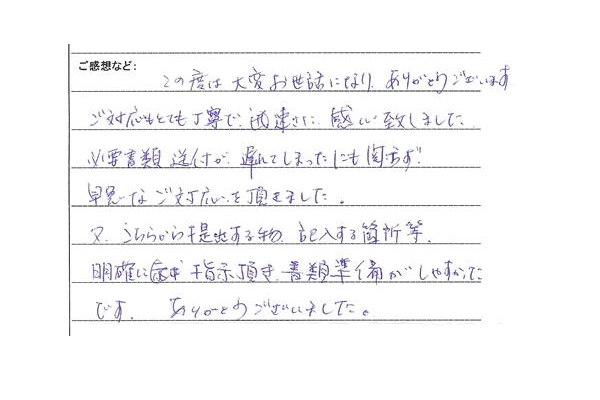 ご感想など:
この度は大変お世話になり、ありがとうございます
ご対応もとても丁寧で、迅速さに、感心致しました。
必要書類送付が、遅れてしまったにも関わず、
早急なご対応を頂きました。
又、こちらから提出する物、記入する箇所等、
明確に 指示頂き、書類準備がしやすかった
です。 ありがとうございました。